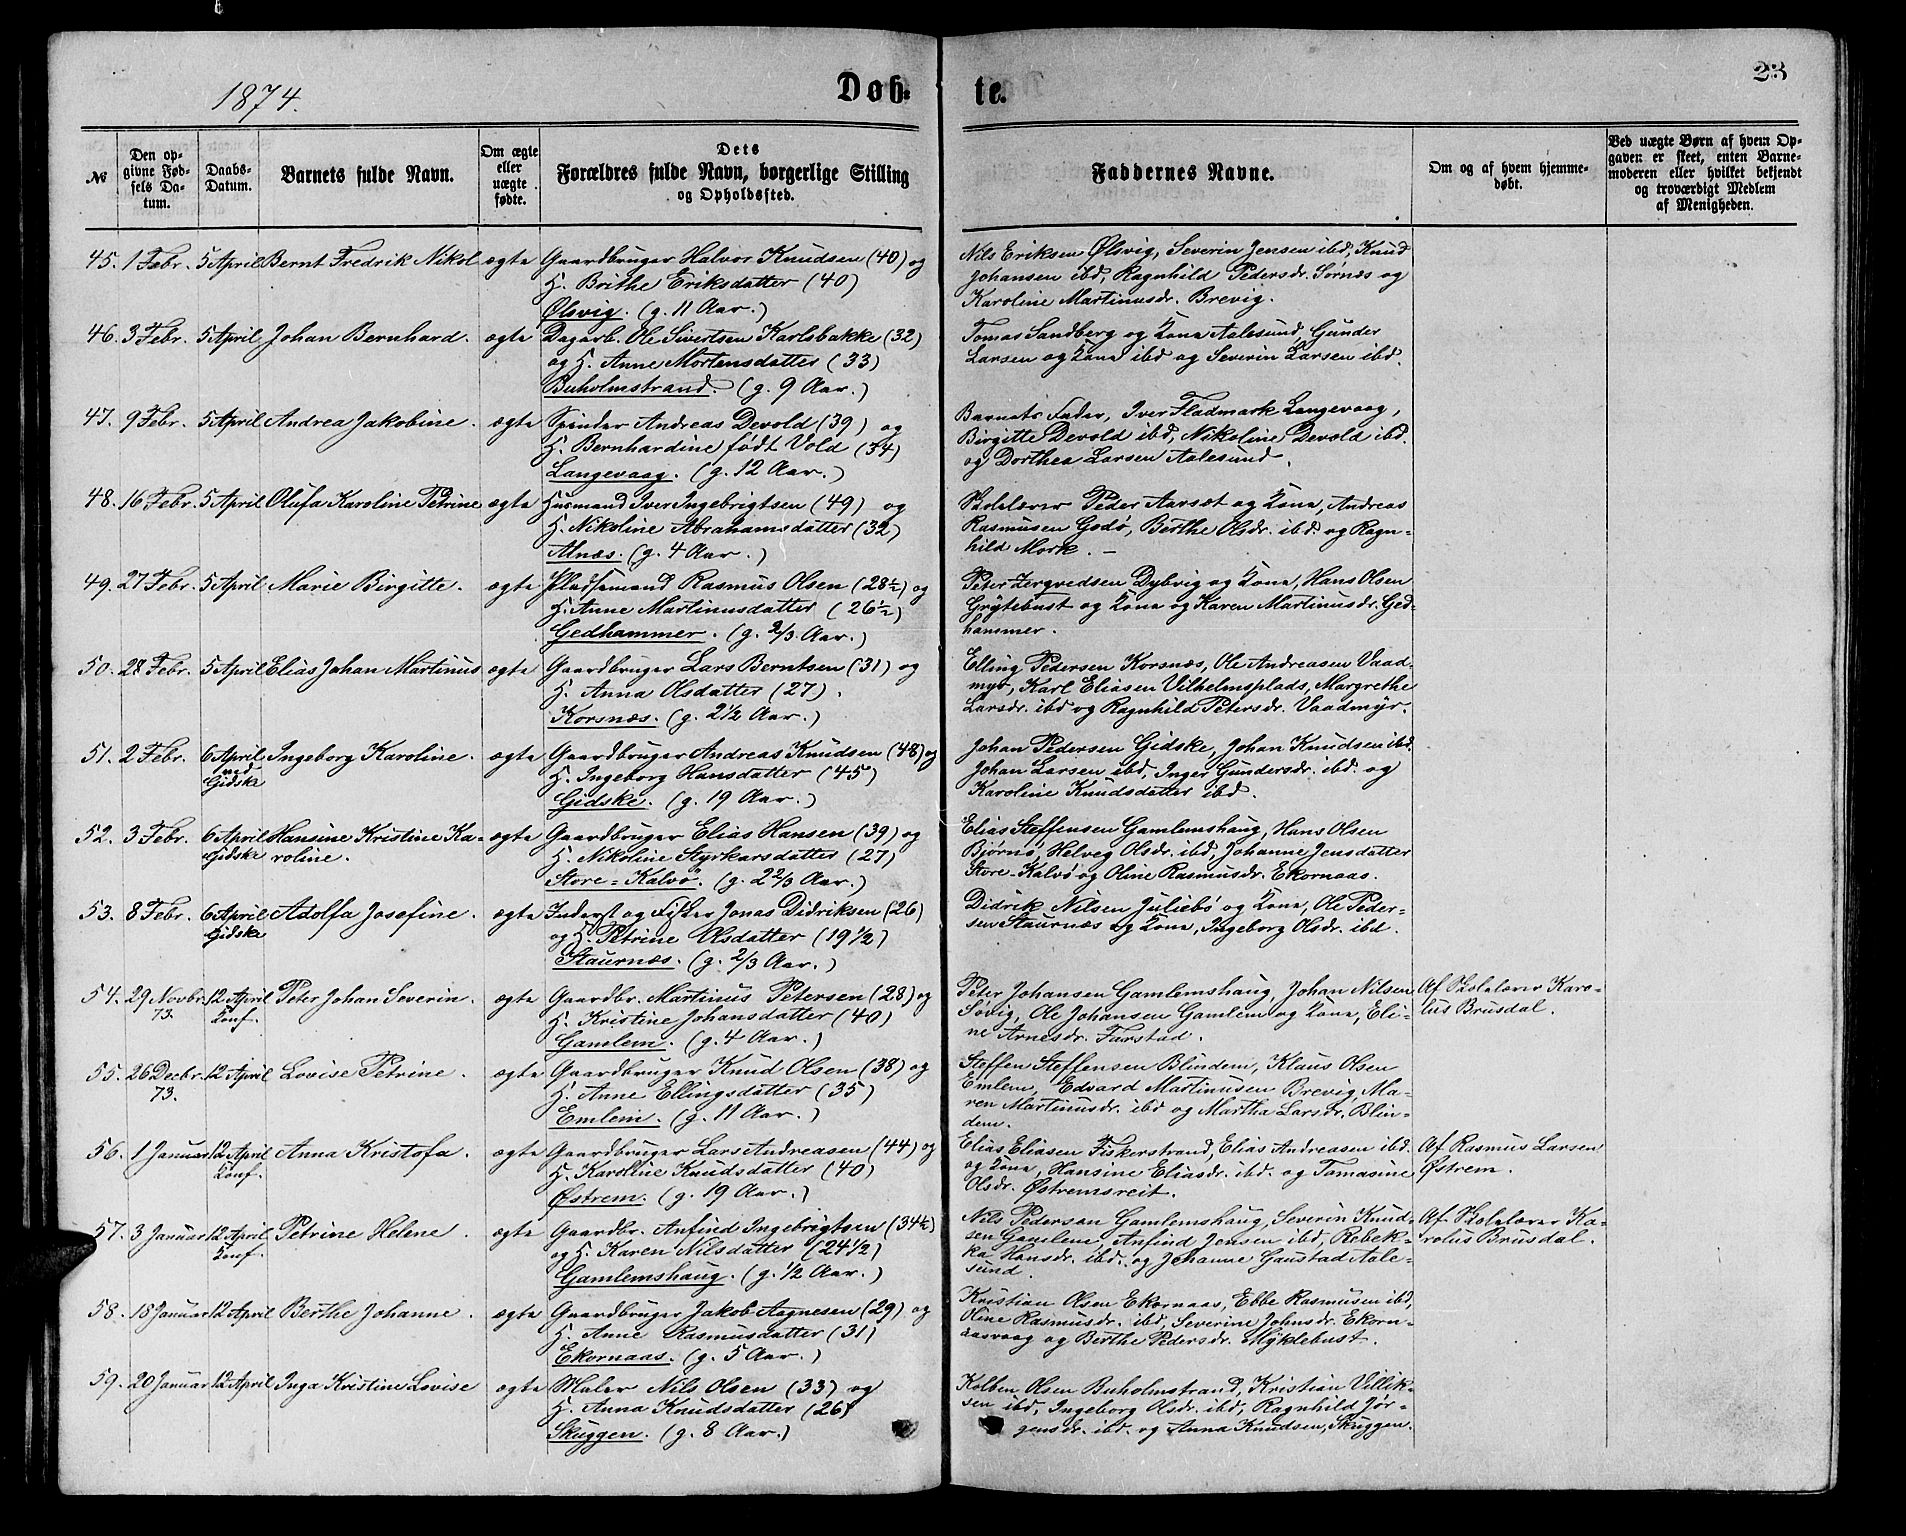 1874.
Døb-
te.
23
№
Den op-
givne Fød-
sels Da-
tum.
Daabs-
Datum.
Barnets fulde Navn.
Om ægte
eller
uægte
fødte.
Dets
Forældres fulde Navn, borgerlige Stilling
og Opholdssted.
Faddernes Navne.
Om og af hvem hjemme-
døbt.
Ved uægte Børn af hvem Op-
gaven er skeet, enten Barne-
moderen eller hvilket bekjendt
og troværdigt Medlem
af Menigheden.
45. 1 Febr. 5 April Bernt Fredrik Nikol ægte Gaardbruger Halvor Knudsen (40) og
H. Brithe Eriksdatter (40)
Ølsvig. (g. 11 Aar.)
Nils Eriksen Ølsvig, Severin Jensen ibd, Knud
Johansen ibd, Ragnhild Pedersdr. Sørnæs og
Karoline Martinusdr. Brevig.
46. 3 Febr. 5 April Johan Bernhard. ægte Dagarb. Ole Sivertsen Karlsbakke (32)
og H. Anne Mortensdatter (33)
Buholmstrand. (g. 9 Aar.)
Tomas Sandberg og Kona Aalesund, Gunder
Larsen og Kona ibd og Severin Larsen ibd.
47. 9 Febr. 5 April Andrea Jakobine. ægte Spinder Andreas Devold (39) og
H. Bernhardine født Vold (34)
Langevaag. (g. 12 Aar.)
Barnets Fader, Iver Fladmark Langevaag,
Birgitte Devold ibd, Nikoline Devold ibd.
og Dorthea Larsen Aalesund.
48. 16 Febr. 5 April Olufa Karoline Petrine ægte Husmand Iver Ingebrigtsen (49) og
H. Nikoline Abrahamsdatter (32)
Alnæs. (g. 4 Aar.)
Skolelærer Peder Aarset og Kona, Andreas
Rasmusen Godø, Berthe Olsdr. ibd. og Ragn-
hild Mork. –
49. 27 Febr. 5 April Marie Birgitte. ægte Pladsemand Rasmus Olsen (28½) og
H. Anne Martinusdatter (26½)
Gedhammer. (g. 2/3 Aar.)
Peter Zergvedsen Dybvig og Kona, Hans Olsen
Grytebust og Kona og Karen Martinusdr. Ged-
hammer.
50. 28 Febr. 5 April Elias Johan Martinus ægte Gaardbruger Lars Berntsen (31) og
H. Anna Olsdatter (27).
Korsnæs. (g. 2 1/2 Aar.)
Elling Pedersen Korsnæs, Ole Andreasen Vaad-
myr, Karl Eliasen Vilhelmsplads, Margrethe
Larsdr. ibd og Ragnhild Petersdr. Vaadmyr.
51. 2 Febr. 6 April Ingeborg Karoline. ægte Gaardbruger Andreas Knudsen (48) og
ved
Gidske
H. Ingeborg Hansdatter (45)
Gidske. (g. 19 Aar.)
Johan Pedersen Gidske, Johan Knudsen ibd.
Johan Larsen ibd, Inger Gundersdr. ibd. og
Karoline Knudsdatter ibd.
52. 3 Febr. 6 April Hansine Kristine Ka- ægte Gaardbruger Elias Hansen (39) og
Gidske roline. H. Nikoline Styrkarsdatter (27)
Store-Kalvø. (g. 2 2/3 Aar.)
Elias Steffensen Gamlemshaug, Hans Olsen
Bjørnø, Helveg Olsdr. ibd, Johanne Jensdatter
Store-Kalvø og Oline Rasmusdr. Ekornaas.
53. 8 Febr. 6 April Adolfa Josefine. ægte Inderst og Fisker Jonas Didriksen (26)
Gidske og H. Petrine Olsdatter (19 1/2)
Staurnæs. (g. 2/3 Aar.)
Didrik Nilsen Juliebø og Kona, Ole Peder-
sen Staurnæs og Kona, Ingeborg Olsdr. ibd.
54. 29 Novbr. 12 April Peter Johan Severin. ægte Gaardbr. Martinus Petersen (28) og
73. Konf. H. Kristine Johansdatter (40)
Gamlem. (g. 4 Aar.)
Peter Johansen Gamlemshaug, Johan Nilsen
Søvig, Ole Johansen Gamlem og Kona, Eli-
ne Arnesdr. Farstad.
Af Skolelærer Karo-
lus Brusdal.
55. 26 Decbr. 12 April Lovise Petrine. ægte Gaardbruger Knud Olsen (38) og
73. H. Anne Ellingsdatter (35)
Emlem. (g. 11 Aar.)
Steffen Steffensen Blindem, Klaus Olsen
Emlem, Edvard Martinusen Brevig, Ma-
ren Martinusdr. ibd og Martha Larsdr. Blin-
dem.
56. 1 Januar 12 April Anna Kristofa. ægte Gaardbruger Lars Andreasen (44) og
Konf. H. Karoline Knudsdatter (40)
Østrem. (g. 19 Aar.)
Elias Eliasen Fiskerstrand, Elias Andreasen ibd.
og Kona, Hansine Eliasdr. ibd. og Tomasine
Olsdr. Østremsreit.
Af Rasmus Larsen
Østrem.
57. 3 Januar 12 April Petrine Helene. ægte Gaardbr. Anfind Ingebrigtsen (34½)
Konf. og H. Karen Nilsdatter (24 1/2)
Gamlemshaug. (g. 1/2 Aar.)
Nils Pedersen Gamlemshaug, Severin Knud-
sen Gamlem, Anfind Jensen ibd, Rebek-
ka Hansdr. ibd. og Johanne Gaustad Aale-
sund.
Af Skolelærer Ka-
rolus Brusdal.
58. 18 Januar 12 April Berthe Johanne. ægte Gaardbruger Jakob Aagnesen (29) og
H. Anne Rasmusdatter (31)
Ekornaas. (g. 5 Aar.)
Kristian Olsen Ekornaas, Ebbe Rasmusen ibd,
Oline Rasmusdr. ibd, Severine Johnsdr. Ekorn-
aasvaag og Berthe Pedersdr. Myklebust.
59. 20 Januar 12 April Inga Kristine Lovise ægte Maler Nils Olsen (33) og
H. Anna Knudsdatter (26)
Skuggen. (g. 8 Aar.)
Kolben Olsen Buholmstrand, Kristian Villik-
sen ibd, Ingeborg Olsdr. ibd, Ragnhild Jør-
gensdr. ibd. og Anna Knudsen, Skuggen.